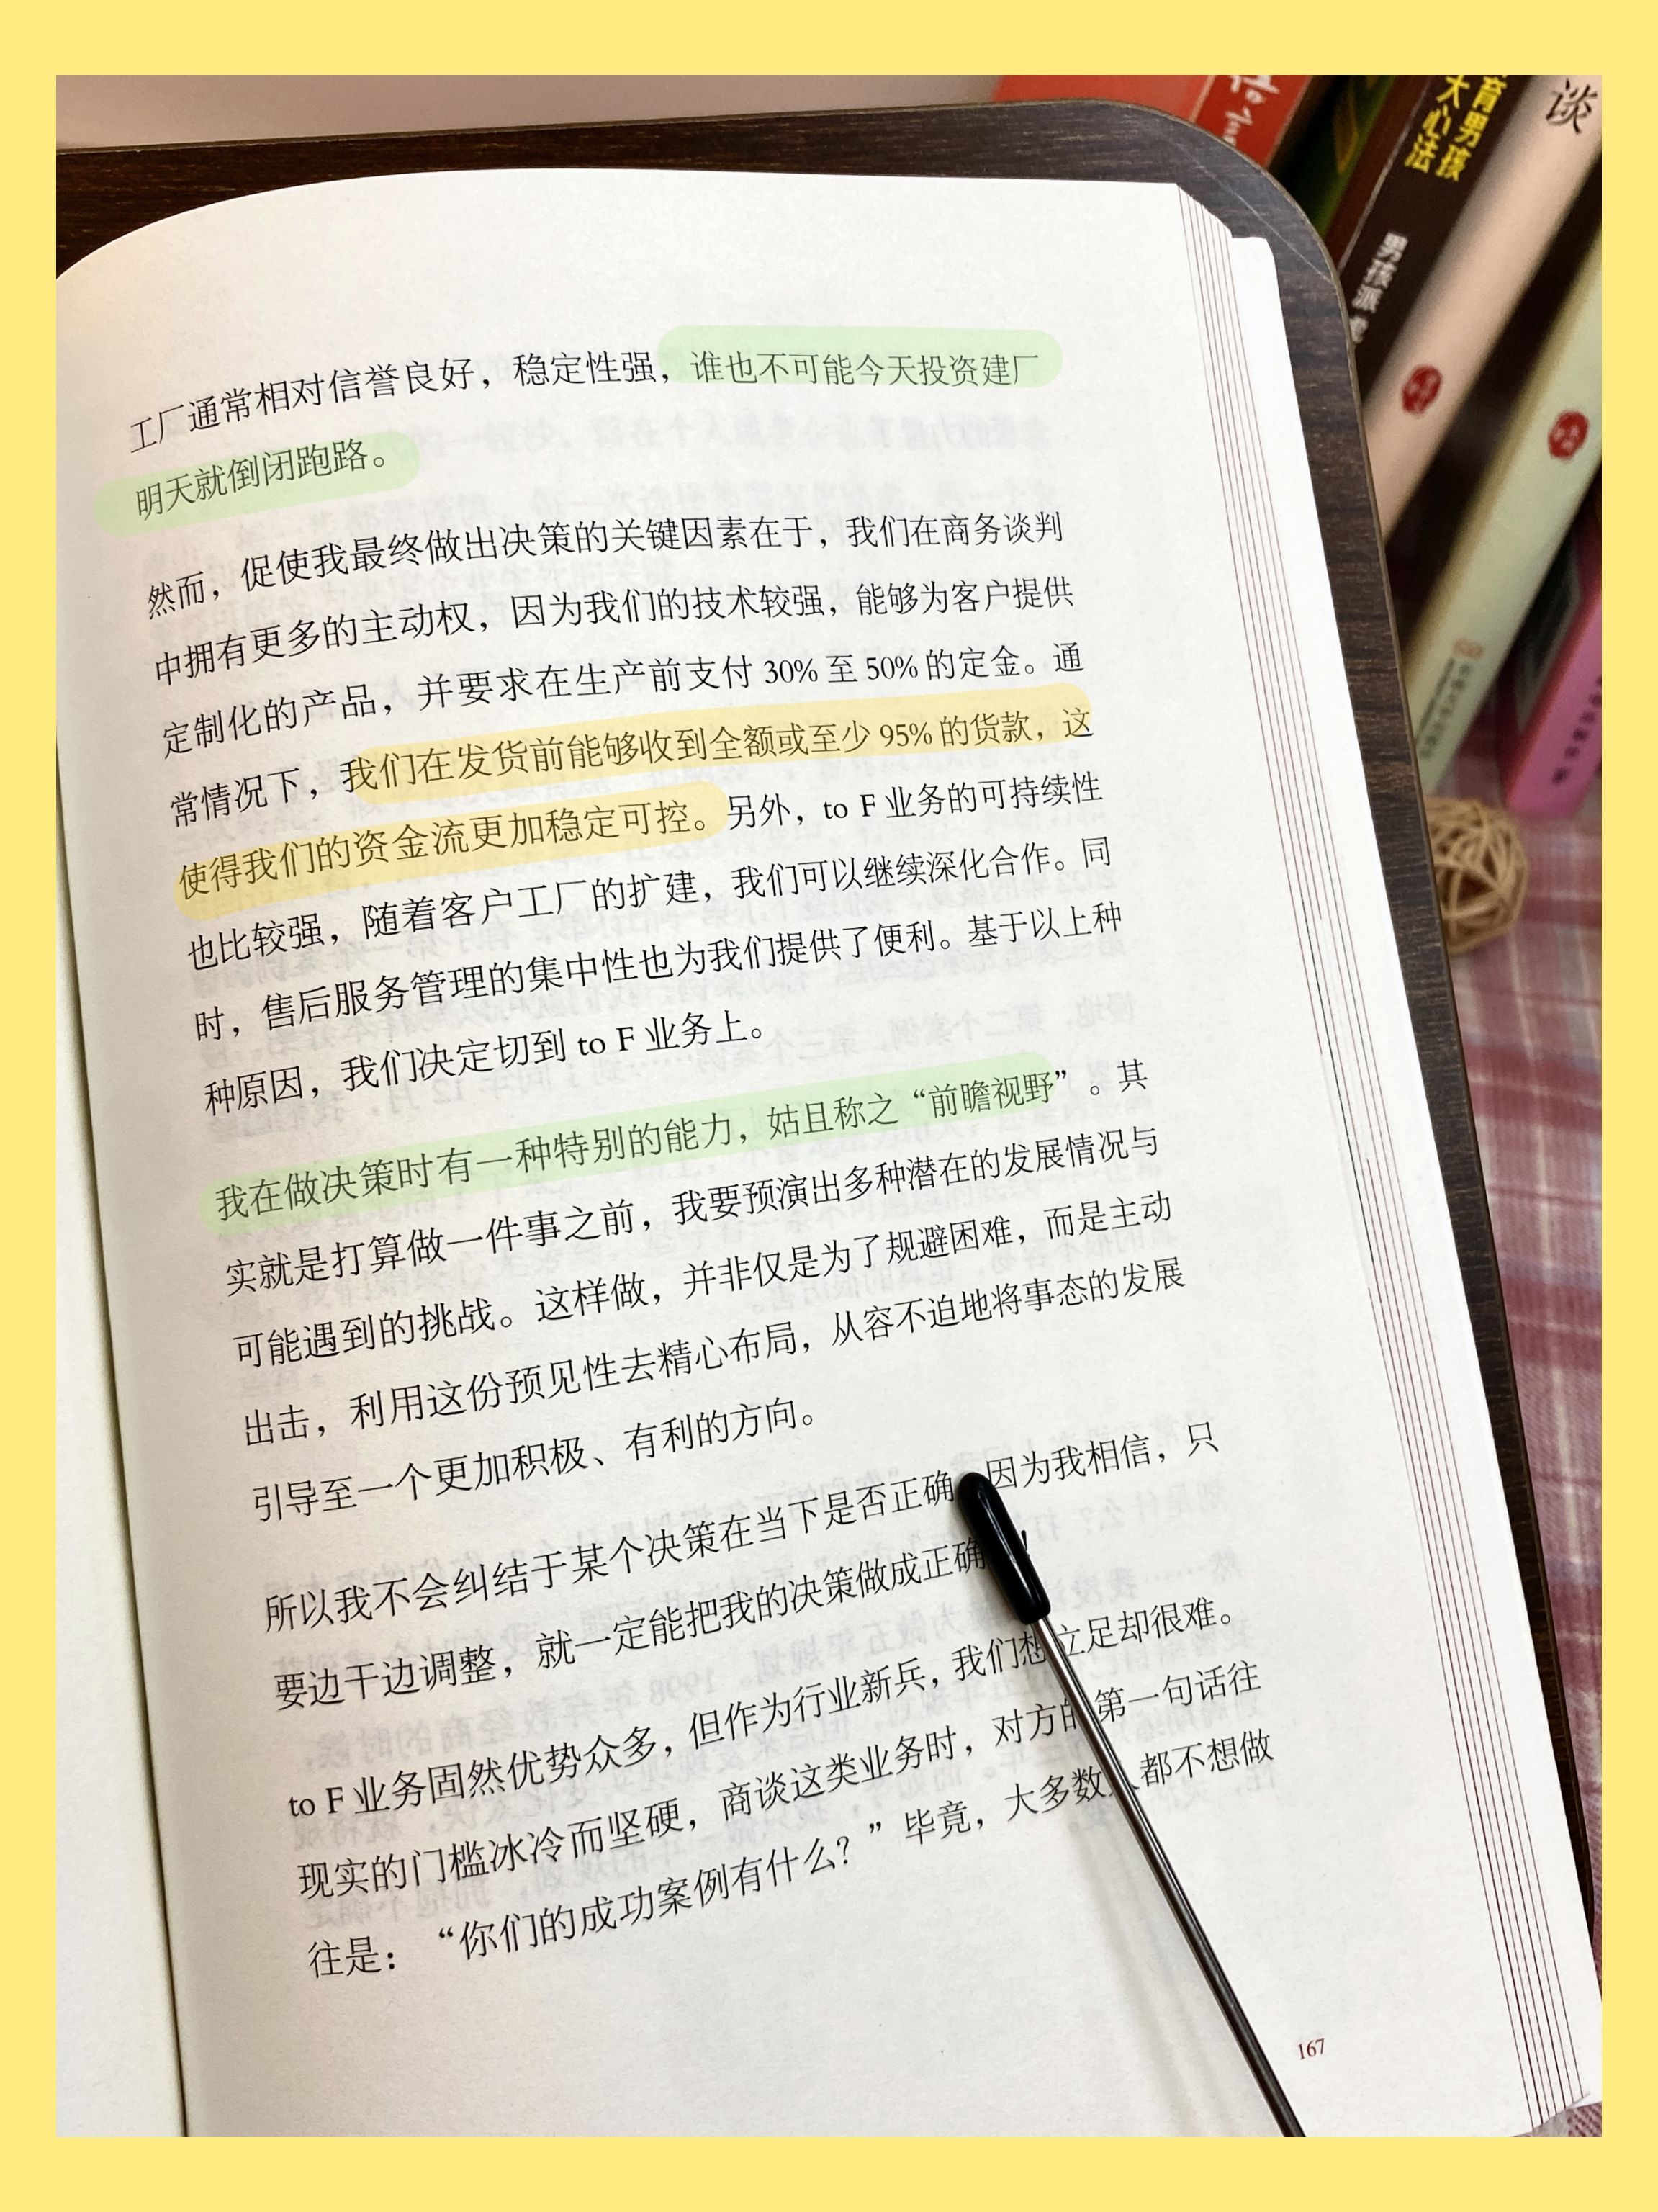 工厂通常相对信誉良好，稳定性强，谁也不可能今天投资建厂
明天就倒闭跑路。
然而，促使我最终做出决策的关键因素在于，我们在商务谈判
中拥有更多的主动权，因为我们的技术较强，能够为客户提供
定制化的产品，并要求在生产前支付 30% 至 50% 的定金。通
常情况下，我们在发货前能够收到全额或至少 95% 的货款，这
使得我们的资金流更加稳定可控。另外，to F 业务的可持续性
也比较强，随着客户工厂的扩建，我们可以继续深化合作。同
时，售后服务管理的集中性也为我们提供了便利。基于以上种
种原因，我们决定切到 to F 业务上。
我在做决策时有一种特别的能力，姑且称之“前瞻视野”。其
实就是打算做一件事之前，我要预演出多种潜在的发展情况与
可能遇到的挑战。这样做，并非仅是为了规避困难，而是主动
出击，利用这份预见性去精心布局，从容不迫地将事态的发展
引导至一个更加积极、有利的方向。
所以我不会纠结于某个决策在当下是否正确 因为我相信，只
要边干边调整，就一定能把我的决策做成正确
to F 业务固然优势众多，但作为行业新兵，我们想立足却很难。
现实的门槛冰冷而坚硬，商谈这类业务时，对方的第一句话往
往是：“你们的成功案例有什么？”毕竟，大多数 都不想做
167
育男孩
大心法
男孩派
谈